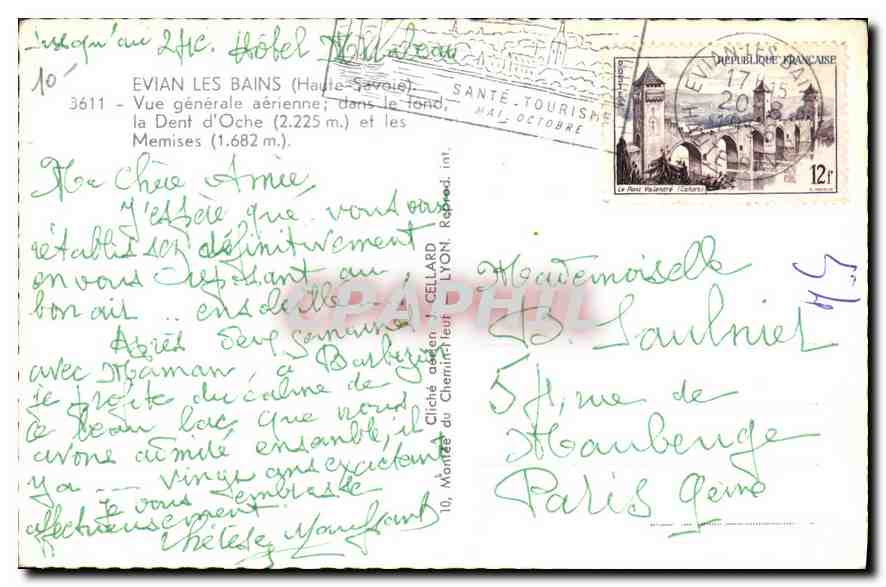 Jusqu'au 24c. Hôtel Mirabeau
10-
EVIAN LES BAINS (Haute-Savoie).
3611 - Vue générale aérienne; dans le fond,
la Dent d'Oche (2.225 m.) et les
Memises (1.682 m.).
SANTÉ-TOURISME
MAI_OCTOBRE
EVIAN-LES-BAINS
17H15
20-8
POSTES
REPUBLIQUE FRANÇAISE
Le Pont Valentré (Cahors)
12F
Ma Chère Amie
J'espère que vous vous
rétablissez définitivement
en vous reposant au
bon air .. ensoleillé
Après deux semaines
avec Maman, à Barbezieux
je profite du calme de
ce beau lac que nous
avons admiré ensemble, il
y a -- vingt ans exactement
Je vous embrasse
affectueusement
A. Cliché aérien J. CELLARD
10, Montée du Chemin-Neuf LYON. Reprod. int.
CPAPHIL
Mademoiselle
D. Saulnier
54, rue de
Maubeuge
Paris 9ème